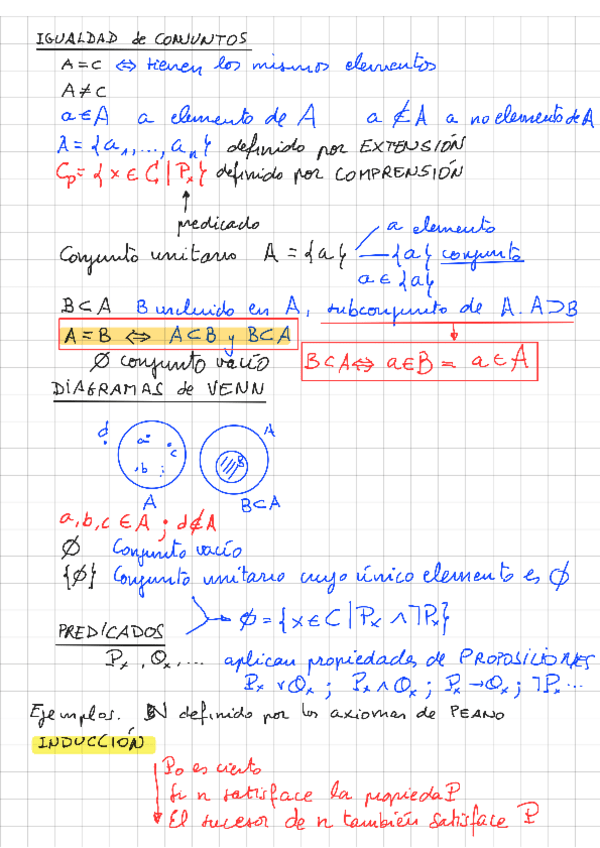 IGUALDAD de CONJUNTOS
A = C ⇔ tienen los mismos elementos
A ≠ C
a ∈ A a elemento de A a ∉ A a no elemento de A
A = {a₁, ..., aₙ} definido por EXTENSIÓN
Cp = {x ∈ C | Pₓ} definido por COMPRENSIÓN
↑
predicado
a elemento
Conjunto unitario A = {a} {a} conjunto
a ∈ {a}
B ⊂ A B incluido en A, subconjunto de A. A ⊃ B
A = B ⇔ A ⊂ B y B ⊂ A
∅ conjunto vacío
B ⊂ A ⇔ a ∈ B = a ∈ A
DIAGRAMAS de VENN
d a b c A
A B B ⊂ A
a, b, c ∈ A ; d ∉ A
∅ Conjunto vacío
{∅} Conjunto unitario cuyo único elemento es ∅
∅ = {x ∈ C | Pₓ ∧ ¬Pₓ}
PREDICADOS
Pₓ, Qₓ, ... aplican propiedades de PROPOSICIONES
Pₓ ∨ Qₓ ; Pₓ ∧ Qₓ ; Pₓ → Qₓ ; ¬Pₓ ...
Ejemplos. ℕ definido por los axiomas de PEANO
INDUCCIÓN
P₀ es cierto
Si n satisface la propiedad P
El sucesor de n también satisface P